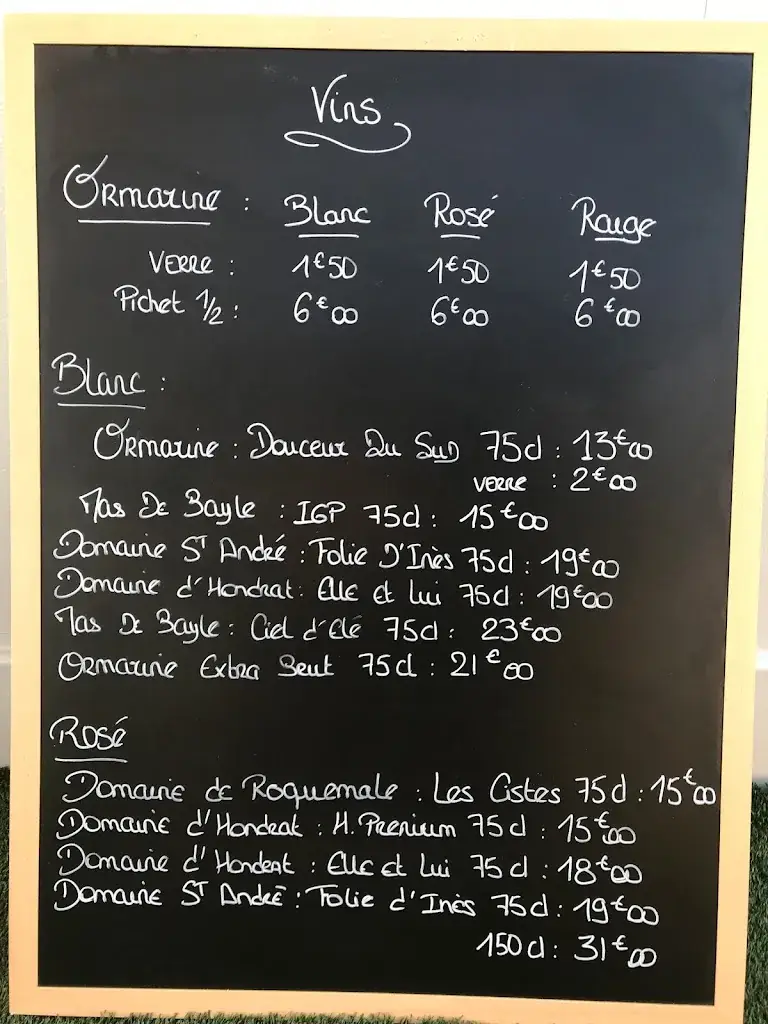 Vins
Ormarine : Blanc Rosé Rouge
Verre : 1€50 1€50 1€50
Pichet 1/2 : 6€00 6€00 6€00
Blanc :
Ormarine : Douceur Du Sud 75cl : 13€00
verre : 2€00
Mas De Bayle : IGP 75cl : 15€00
Domaine St André : Folie D'Inès 75cl : 19€00
Domaine d'Hondrat : Elle et Lui 75cl : 19€00
Mas De Bayle : Ciel d'Clé 75cl : 23€00
Ormarine Extra Brut 75cl : 21€00
Rosé
Domaine de Roquemale : Les Cistes 75cl : 15€00
Domaine d'Hondrat : H. Premium 75cl : 15€00
Domaine d'Hondrat : Elle et Lui 75cl : 18€00
Domaine St André : Folie d'Inès 75cl : 19€00
150cl : 31€00